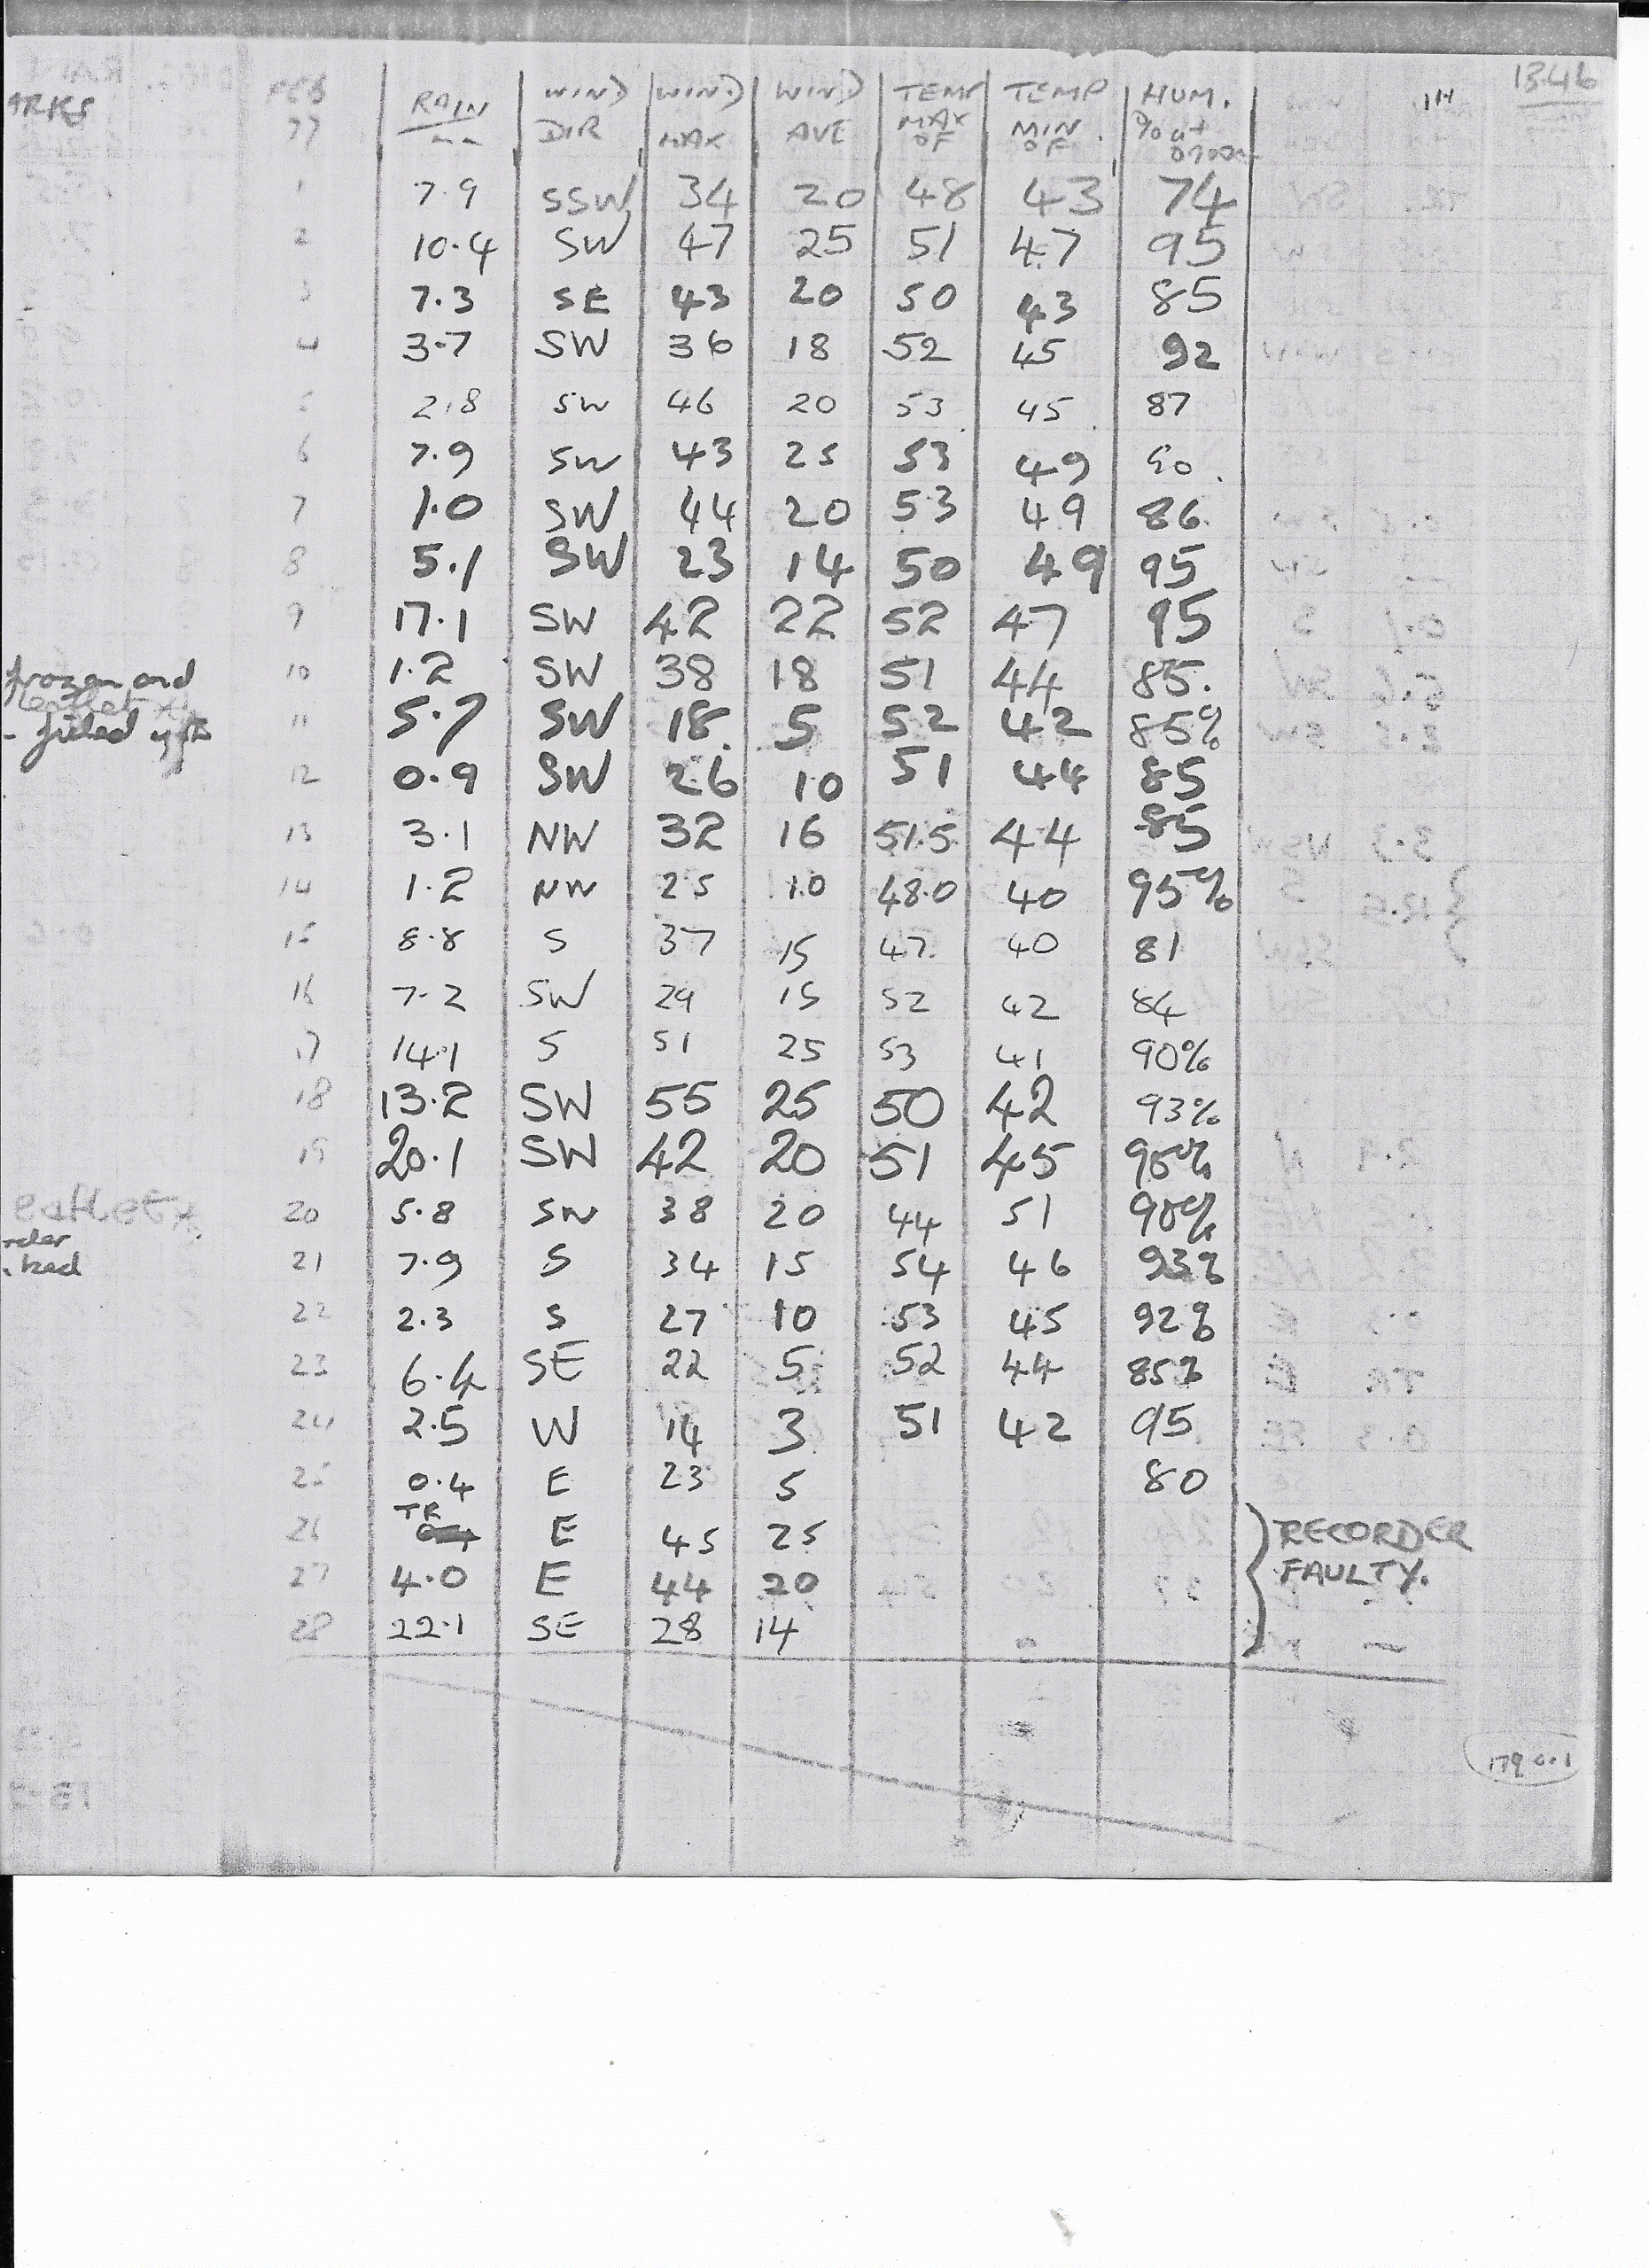 ARKS FEB RAIN WIND WIND WIND TEMP TEMP HUM. 1H 1346
77 -- DIR MAX AVE MAX MIN % at
°F °F 0900
1 7.9 SSW 34 20 48 43 74
2 10.4 SW 47 25 51 47 95
3 7.3 SE 43 20 50 43 85
4 3.7 SW 36 18 52 45 92
5 2.8 SW 46 20 53 45 87
6 7.9 SW 43 25 53 49 90
7 1.0 SW 44 20 53 49 86
8 5.1 SW 23 14 50 49 95
9 17.1 SW 42 22 52 47 95
frozen and 10 1.2 SW 38 18 51 44 85.
- 11 5.7 SW 18 5 52 42 85%
12 0.9 SW 26 10 51 44 85
13 3.1 NW 32 16 51.5 44 85
14 1.2 NW 25 10 48.0 40 95%
15 8.8 S 37 15 47 40 81
16 7.2 SW 29 15 52 42 84
17 14.1 S 51 25 53 41 90%
18 13.2 SW 55 25 50 42 93%
19 20.1 SW 42 20 51 45 90%
20 5.8 SW 38 20 44 51 90%
21 7.9 S 34 15 54 46 93%
22 2.3 S 27 10 53 45 92%
23 6.4 SE 22 5 52 44 85%
24 2.5 W 14 3 51 42 95
25 0.4 E 23 5 80
26 TR E 45 25 RECORDER
27 4.0 E 44 20 FAULTY.
28 22.1 SE 28 14
190.1